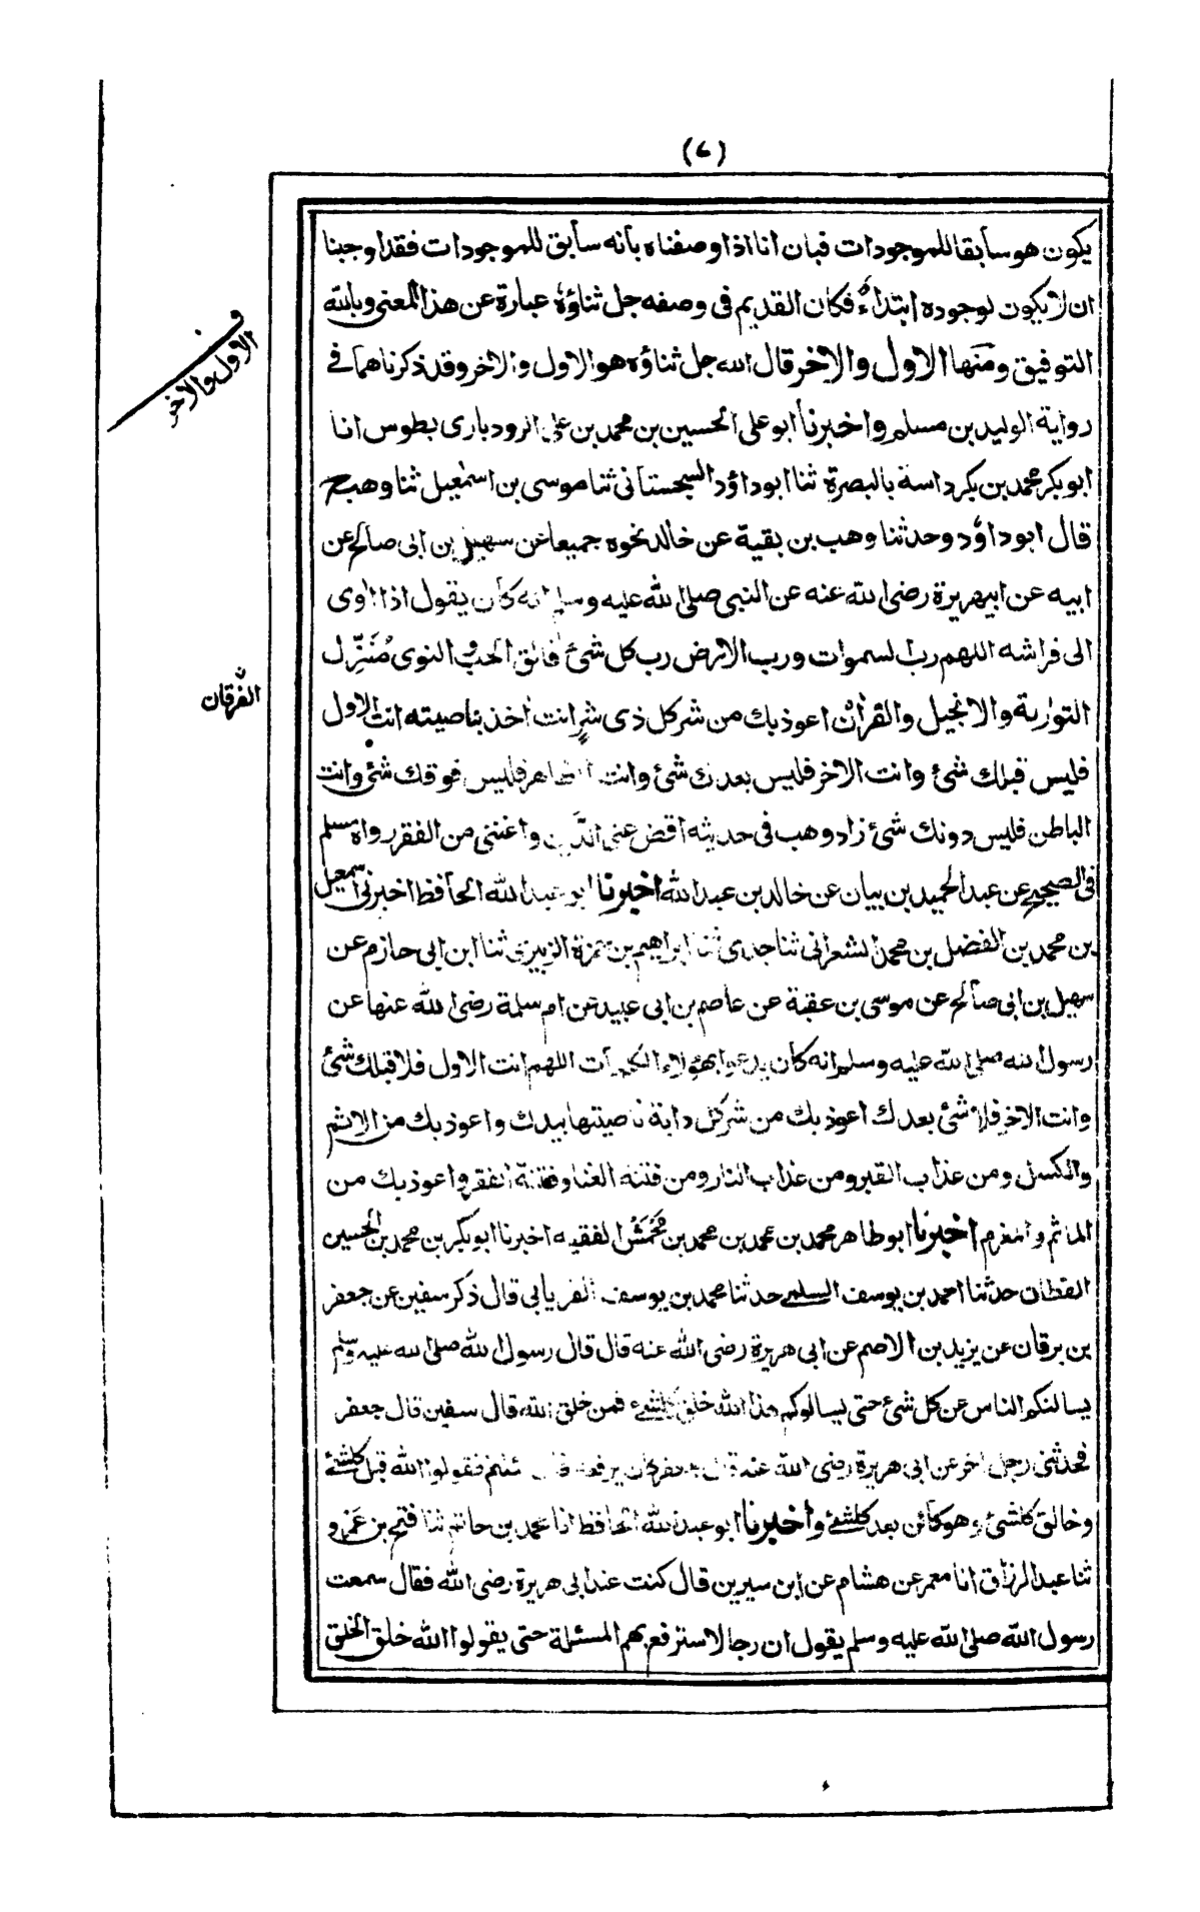 (٧)
يكون هو سابقا للموجودات فبان انا اذا وصفناه بأنه سابق للموجودات فقد اوجبنا
ان لا يكون لوجوده ابتداءٌ فكان القديم فى وصفه جل ثناؤه عبارة عن هذا المعنى وبالله
التوفيق ومنها الاول والاخر قال الله جل ثناؤه هو الاول والاخر وقد ذكرناهما فى
رواية الوليد بن مسلم واخبرنا ابو على الحسين بن محمد بن على الروذبارى بطوس انا
ابو بكر محمد بن بكر داسة بالبصرة ثنا ابو داؤد السجستانى ثنا موسى بن اسمعيل ثنا وهب ح
قال ابو داؤد وحدثنا وهب بن بقية عن خالد نحوه جميعا عن سهيل بن ابى صالح عن
ابيه عن ابيهريرة رضى الله عنه عن النبى صلى الله عليه وسلم انه كان يقول اذا اوى
الى فراشه اللهم رب السموات ورب الارض رب كل شئ فالق الحب و النوى مُنَزِّل
التورٰىة والانجيل والقرأن اعوذ بك من شر كل ذى شرٍ انت أخذ بناصيته انت الاول
فليس قبلك شئ وانت الاخر فليس بعدك شئ وانت الظاهر فليس فوقك شئ وانت
الباطن فليس دونك شئ زاد وهب فى حديثه اقض عنى الدَّين واغننى من الفقر رواه مسلم
فى الصحيح عن عبد الحميد بن بيان عن خالد بن عبد الله اخبرنا ابو عبد الله الحافظ اخبرنى اسمعيل
بن محمد بن الفضل بن محمد الشعرانى ثنا جدى ثنا ابراهيم بن حمزة الزبيرى ثنا ابن ابى حازم عن
سهيل بن ابى صالح عن موسى بن عقبة عن عاصم بن ابى عبيد عن ام سلمة رضى الله عنها عن
رسول الله صلى الله عليه وسلم انه كان يدعوا بهؤلاء الكلمات اللهم انت الاول فلا قبلك شئ
وانت الاخر فلا شئ بعدك اعوذ بك من شر كل دابة ناصيتها بيدك واعوذ بك من الاثم
والكسل ومن عذاب القبر ومن عذاب النار ومن فتنة الغنا وفتنة الفقر واعوذ بك من
الماثم والمغرم اخبرنا ابو طاهر محمد بن محمد بن محمد بن مَحْمَش الفقيه اخبرنا ابو بكر بن محمد بن الحسين
القطان حدثنا احمد بن يوسف السلمى حدثنا محمد بن يوسف الفريابى قال ذكر سفين عن جعفر
بن برقان عن يزيد بن الاصم عن ابى هريرة رضى الله عنه قال قال رسول الله صلى الله عليه وسلم
يسالنكم الناس عن كل شئ حتى يسالوكم هذا الله خلق كلشئ فمن خلق الله قال سفين قال جعفر
فحدثنى رجل اخر عن ابى هريرة رضى الله عنه قال جعفر كان يرفعه فان سئلتم فقولوا الله قبل كلشئ
وخالق كلشئ وهو كائن بعد كلشئ واخبرنا ابو عبد الله الحافظ انا محمد بن حاتم ثنا فتح بن عمرو
ثنا عبد الرزاق انا معمر عن هشام عن ابن سيرين قال كنت عند ابى هريرة رضى الله فقال سمعت
رسول الله صلى الله عليه وسلم يقول ان رجالا سترفع بهم المسئلة حتى يقولوا الله خلق الخلق
الاول والاخر
الفرقان